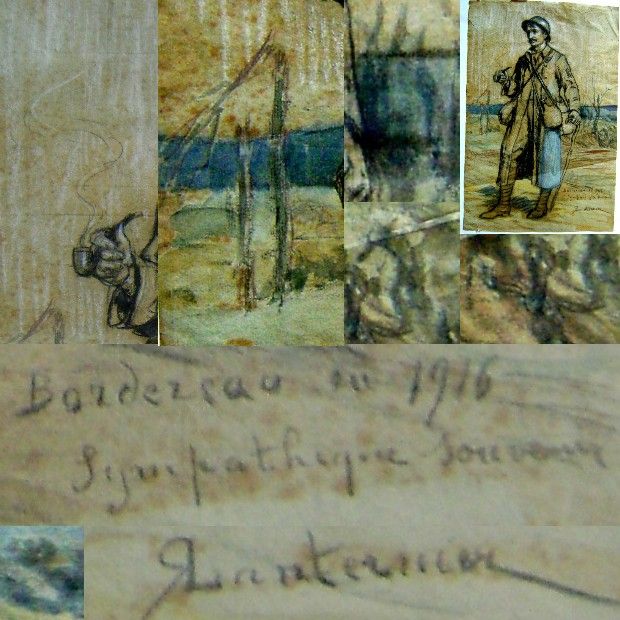 Bordereau 1916
Sympathique souvenir
Lanternier